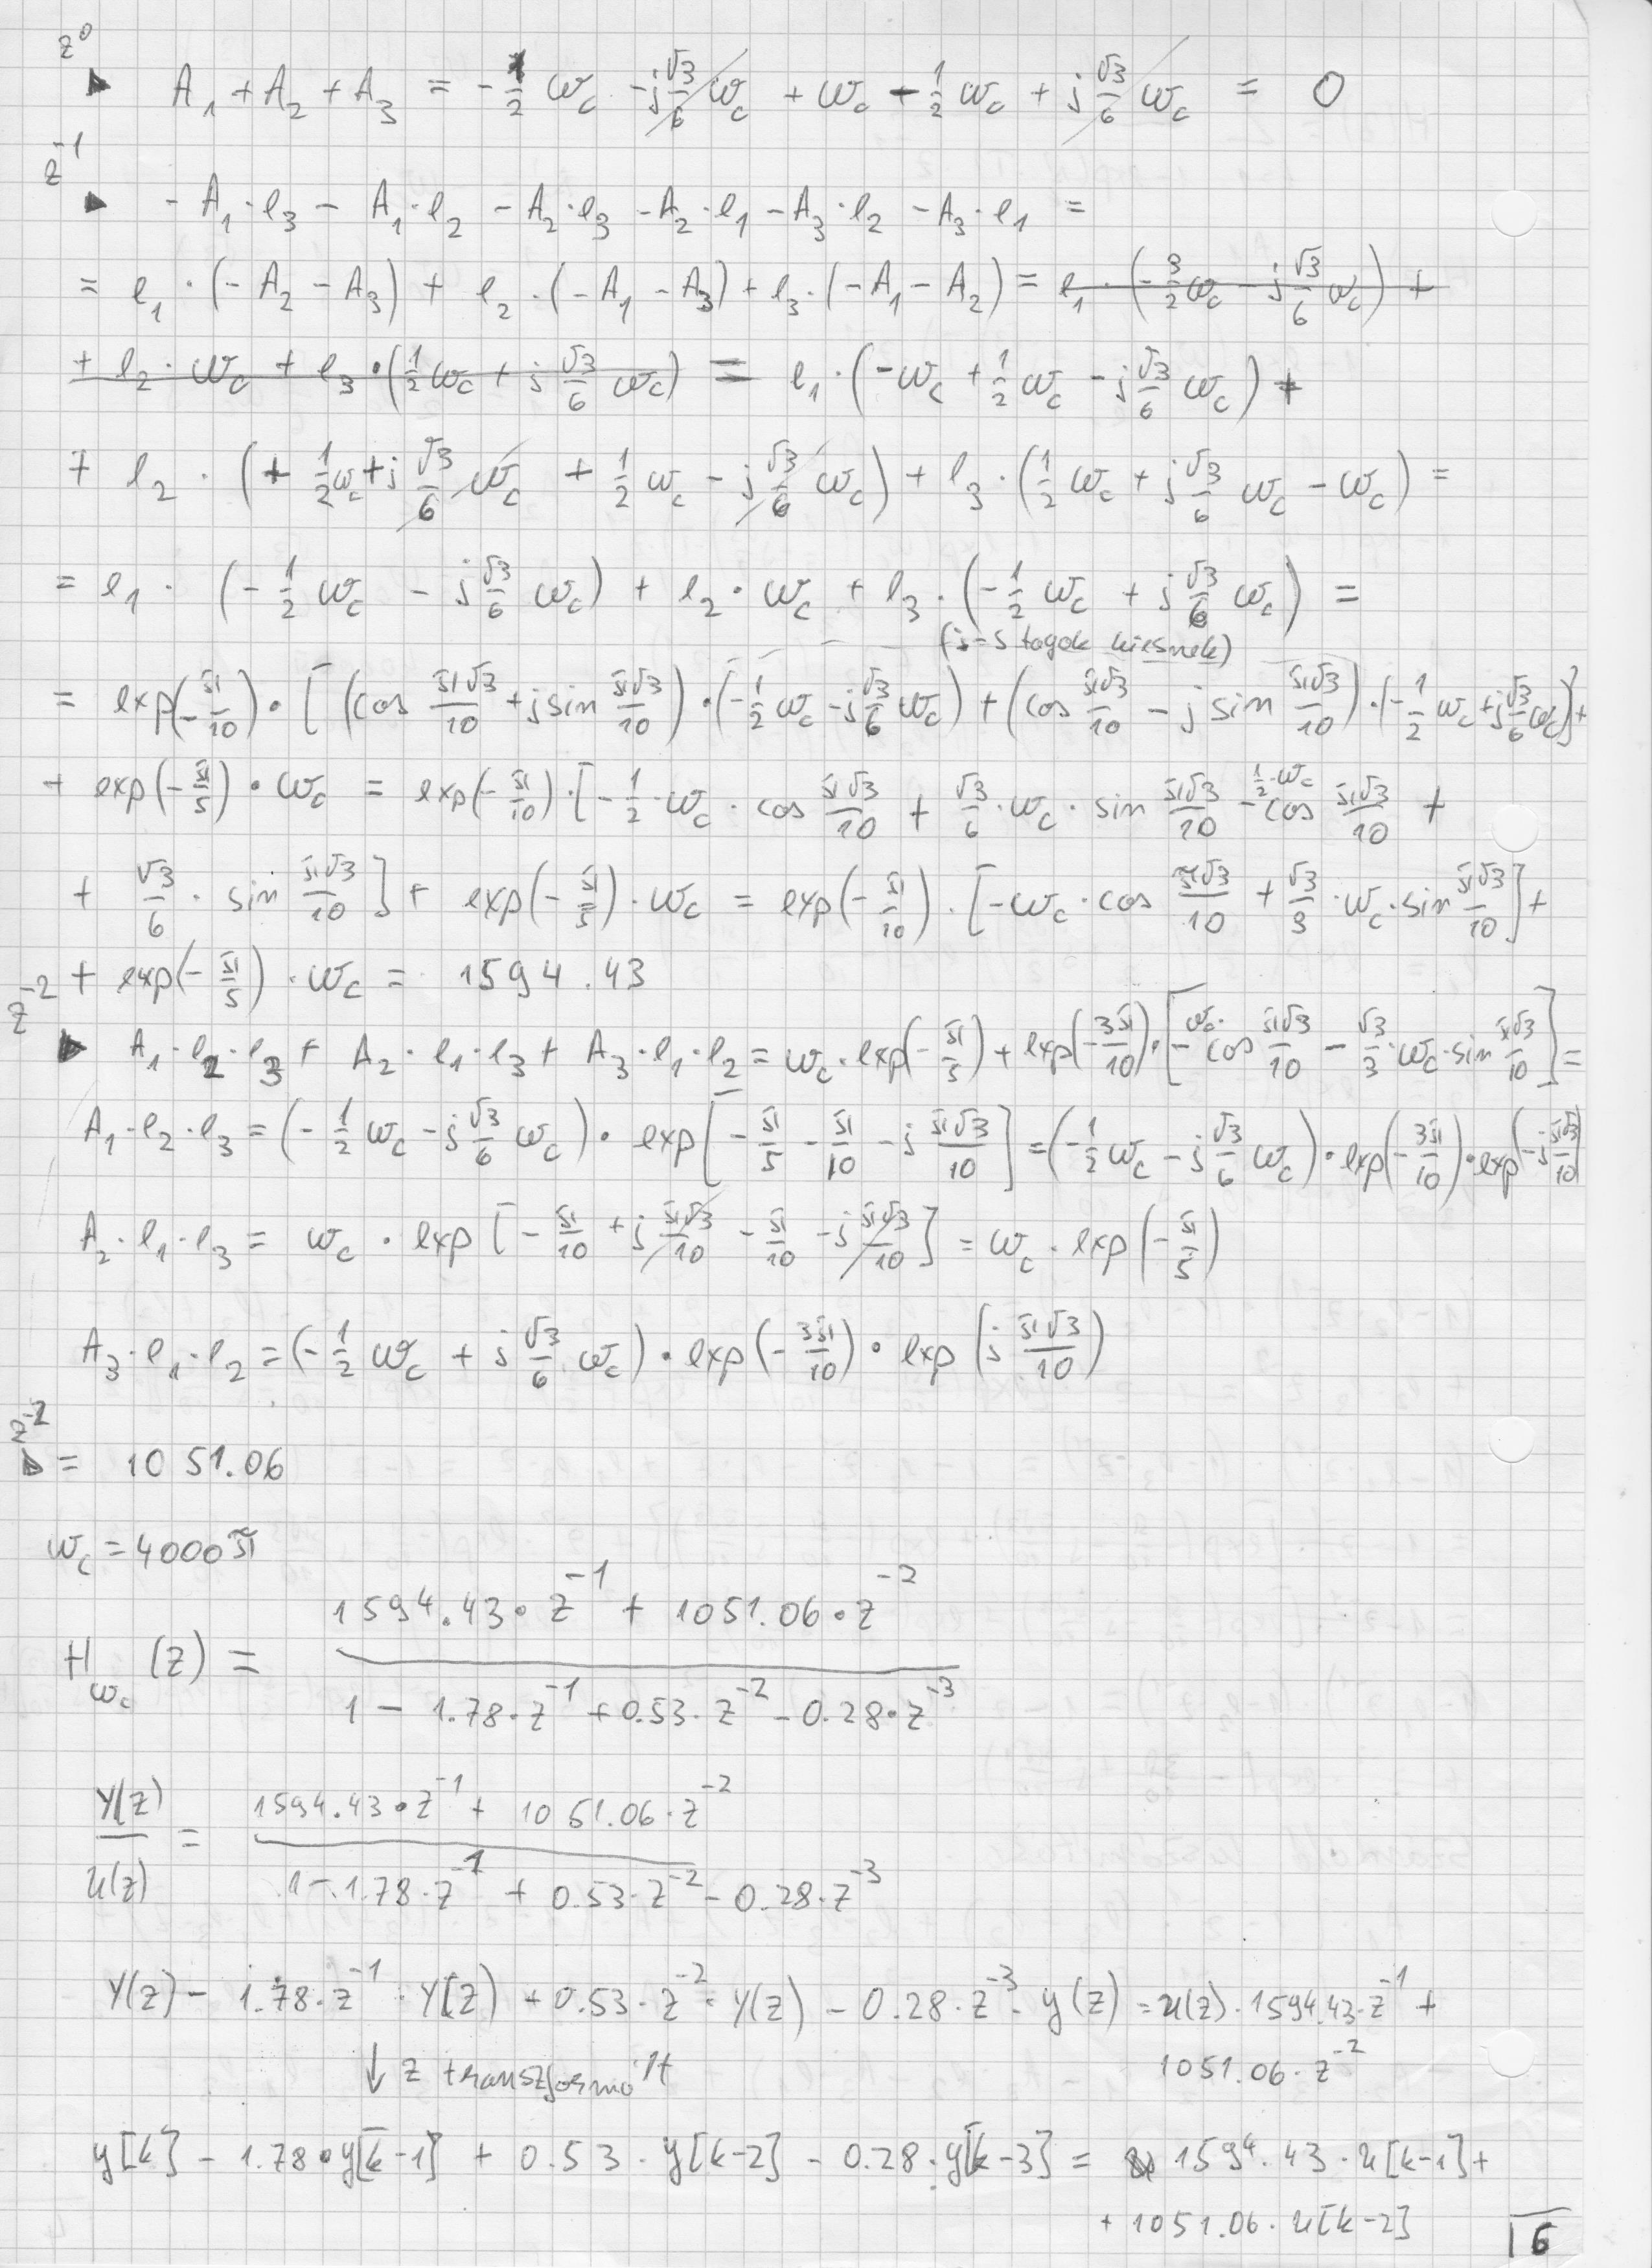 z^0
▶ A_1 + A_2 + A_3 = -1/2 ω_c - j √3/6 ω_c + ω_c - 1/2 ω_c + j √3/6 ω_c = 0
z^-1
▶ - A_1·e_3 - A_1·e_2 - A_2·e_3 - A_2·e_1 - A_3·e_2 - A_3·e_1 =
= e_1·(-A_2 - A_3) + e_2·(-A_1 - A_3) + e_3·(-A_1 - A_2) = e_1·(-3/2 ω_c - j √3/6 ω_c) +
+ e_2·ω_c + e_3·(1/2 ω_c + j √3/6 ω_c) = e_1·(-ω_c + 1/2 ω_c - j √3/6 ω_c) +
+ e_2·(+ 1/2 ω_c + j √3/6 ω_c + 1/2 ω_c - j √3/6 ω_c) + e_3·(1/2 ω_c + j √3/6 ω_c - ω_c) =
= e_1·(-1/2 ω_c - j √3/6 ω_c) + e_2·ω_c + e_3·(-1/2 ω_c + j √3/6 ω_c) =
(j-s tagok kiesnek)
= exp(-π/10)·[(cos π√3/10 + j sin π√3/10)·(-1/2 ω_c - j √3/6 ω_c) + (cos π√3/10 - j sin π√3/10)·(-1/2 ω_c + j √3/6 ω_c)] +
+ exp(-π/5)·ω_c = exp(-π/10)·[-1/2·ω_c·cos π√3/10 + √3/6·ω_c·sin π√3/10 - 1/2·ω_c cos π√3/10 +
+ √3/6·sin π√3/10] + exp(-π/5)·ω_c = exp(-π/10)·[-ω_c·cos π√3/10 + √3/3·ω_c·sin π√3/10] +
+ exp(-π/5)·ω_c = 1594.43
z^-2
▶ A_1·e_2·e_3 + A_2·e_1·e_3 + A_3·e_1·e_2 = ω_c·exp(-π/5) + exp(-3π/10)·[-ω_c·cos π√3/10 - √3/3·ω_c·sin π√3/10] =
A_1·e_2·e_3 = (-1/2 ω_c - j √3/6 ω_c)·exp[-π/5 - π/10 - j π√3/10] = (-1/2 ω_c - j √3/6 ω_c)·exp(-3π/10)·exp(-j π√3/10)
A_2·e_1·e_3 = ω_c·exp[-π/10 + j π√3/10 - π/10 - j π√3/10] = ω_c·exp(-π/5)
A_3·e_1·e_2 = (-1/2 ω_c + j √3/6 ω_c)·exp(-3π/10)·exp(j π√3/10)
z^-2
▶ = 1051.06
ω_c = 4000π
1594.43·z^-1 + 1051.06·z^-2
H_ω_c (z) =
1 - 1.78·z^-1 + 0.53·z^-2 - 0.28·z^-3
Y(z)/U(z) = 1594.43·z^-1 + 1051.06·z^-2
1 - 1.78·z^-1 + 0.53·z^-2 - 0.28·z^-3
Y(z) - 1.78·z^-1·Y(z) + 0.53·z^-2·Y(z) - 0.28·z^-3·y(z) = u(z)·1594.43·z^-1 +
1051.06·z^-2
↓ z transzformált
y[k] - 1.78·y[k-1] + 0.53·y[k-2] - 0.28·y[k-3] = 1594.43·u[k-1] +
+ 1051.06·u[k-2]
6